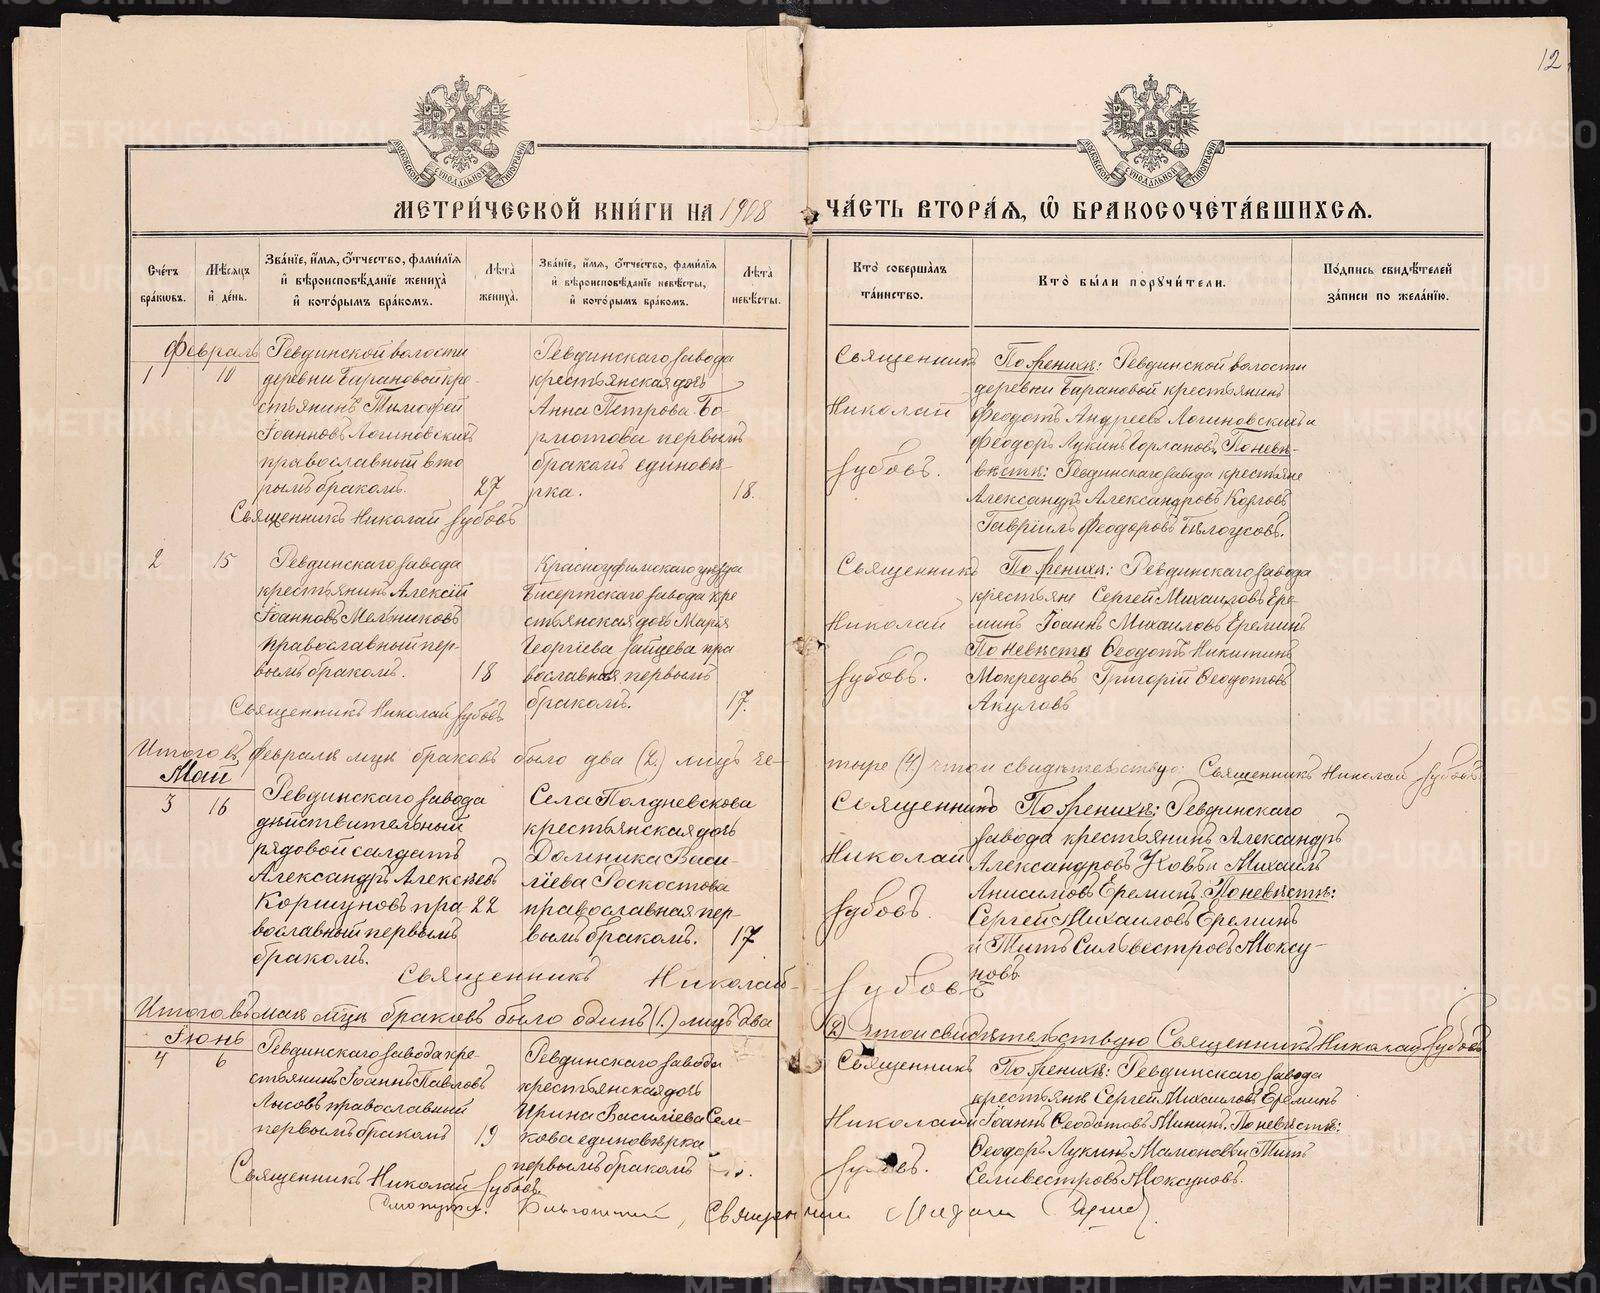 12
МЕТРИ́ЧЕСКОЙ КНИ́ГИ НА 1908
ЧА́СТЬ ВТОРА́Я, Ѽ БРАКОСОЧЕТА́ВШИХСЯ.
Сче́тъ бра́ковъ.
Мѣ́сяцъ и҆ де́нь.
Зва́нїе, и҆́мя, ѻ҆́тчество, фами́лїя
и҆ вѣроисповѣ́данїе жениха̀
и҆ кото́рымъ бра́комъ.
Лѣ́та жениха̀.
Зва́нїе, и҆́мя, ѻ҆́тчество, фами́лїя
и҆ вѣроисповѣ́данїе невѣ́сты,
и҆ кото́рымъ бра́комъ.
Лѣ́та невѣ́сты.
Кто̀ соверша́лъ
та́инство.
Кто̀ бы́ли порꙋчи́тели.
По́дпись свидѣ́телей
за́писи по жела́нїю.
Февраль
1
10
Ревдинской волости
деревни Барановой кре-
стьянинъ Тимофей
Іоанновъ Логиновскихъ
православный вто
рымъ бракомъ.
27
Ревдинскаго завода
крестьянская дочь
Анна Петрова Бо-
рмотова первымъ
бракомъ единовѣ-
рка.
18.
Священникъ
Николай
Зубовъ.
По женихѣ: Ревдинской волости
деревни Барановой крестьянинъ
Феодотъ Андреевъ Логиновскихъ и
Феодоръ Лукинъ Горлановъ. По невѣ-
вѣстѣ: Ревдинскаго завода крестьяне
Александръ Александровъ
Гавріилъ Феодоровъ Бѣлоусовъ.
Священникъ Николай Зубовъ
2
15
Ревдинскаго завода
крестьянинъ Алексій
Іоанновъ Мельниковъ
православный пер-
вымъ бракомъ.
18
Красноуфимскаго уѣзда
Бисертскаго завода кре
стьянская дочь Марья
Георгіева Зайцева пра
вославная первымъ
бракомъ.
17.
Священникъ
Николай
Зубовъ.
По женихѣ: Ревдинскаго завода
крестьяне Сергей Михаиловъ Ере-
минъ Іоаннъ Михаиловъ Ереминъ
По невѣстѣ Ѳеодотъ Никитинъ
Мокрецовъ Григорій Ѳеодотовъ
Акуловъ
Священникъ Николай Зубовъ
Итого въ февралѣ мцѣ браковъ было два (2.) лицъ че-
тыре (4.) въ томъ свидѣтельствую: Священникъ Николай Зубовъ
Май
3
16
Ревдинскаго завода
дѣйствительный
рядовой салдатъ
Александръ Алексѣевъ
Коршуновъ пра-
вославный первымъ
бракомъ.
22
Села Полдневскова
крестьянская дочь
Домника Васи-
ліева Роскостова
православная пер-
вымъ бракомъ.
17
Священникъ
Николай
Зубовъ.
По женихѣ: Ревдинскаго
завода крестьянинъ Александръ
Александровъ и Михаилъ
Анисимовъ Ереминъ. По невѣстѣ:
Сергей Михаиловъ Ереминъ
и Титъ Сильвестровъ Моксу-
новъ
Священникъ Николай
Зубовъ
Итого въ мая мцѣ браковъ было одинъ (1.) лицъ два
(2) въ томъ свидѣтельствую Священникъ Николай Зубовъ
Іюнь
4
6
Ревдинскаго завода кре-
стьянинъ Іоаннъ Павловъ
Лысовъ православный
первымъ бракомъ
19
Ревдинскаго завода
крестьянская дочь
Ирина Василіева Сел-
кова единовѣрка
первымъ бракомъ
Священникъ
Николай
Зубовъ.
По женихѣ: Ревдинскаго завода
крестьяне Сергей Михаиловъ Ереминъ
и Іоаннъ Ѳеодотовъ Мининъ. По невѣстѣ:
Ѳеодоръ Лукинъ Мамоновъ и Титъ
Селивестровъ Моксуновъ.
Священникъ Николай Зубовъ.
Благочинный, Священникъ
METRIKI.GASO-URAL.RU